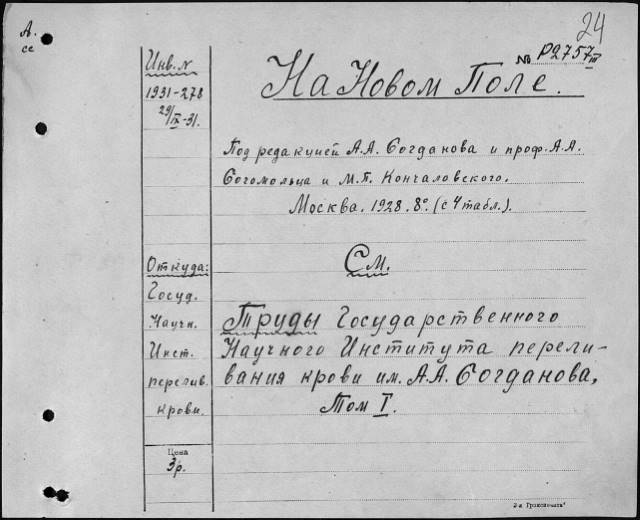 А.
се
24
№ Р2757/III
Инв. №
1931-278
29/IX-31.
На Новом Поле.
Под редакцией А.А. Богданова и проф. А.А.
Богомольца и М.П. Кончаловского.
Москва. 1928. 8°. (с 4 табл.).
См.
Откуда:
Госуд.
Научн.
Инст.
перелив.
крови.
Труды Государственного
Научного Института перели-
вания крови им. А.А. Богданова,
Том I.
Цена
3 р.